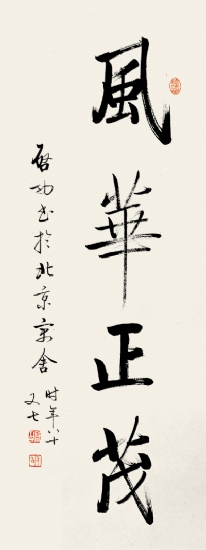 風華正茂
啓功書於北京寓舍
时年八十
又七